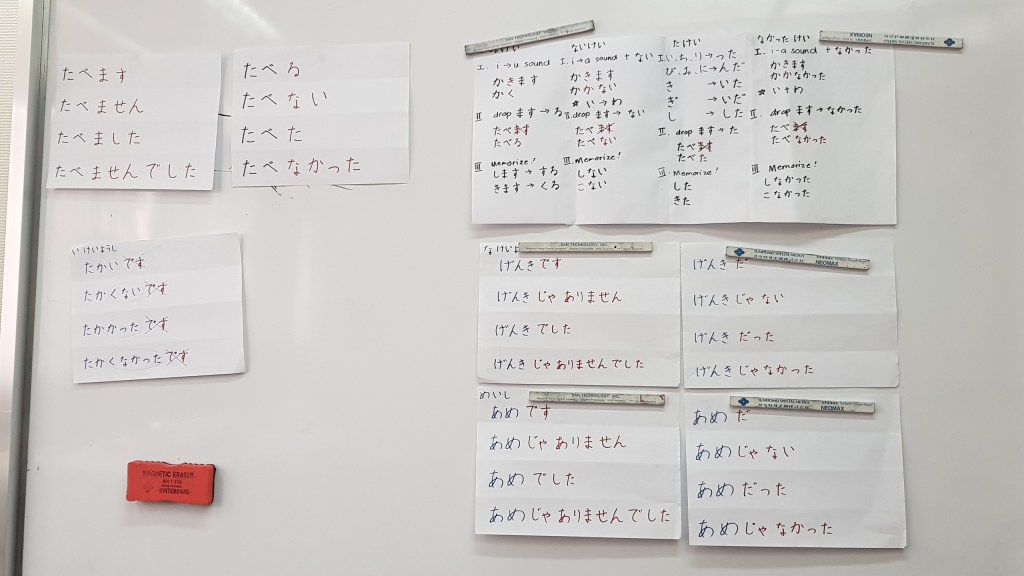 たべます
たべません
たべました
たべませんでした
たべる
たべない
たべた
たべなかった
いけいようし
たかいです
たかくないです
たかかったです
たかくなかったです
MAGNETIC ERASER
WHITEBOARD
I. i→u sound
かきます
かく
II drop ます→る
たべます
たべる
III Memorize!
します→する
きます→くる
ないけい
I. i→a sound + ない
かきます
かかない
☆ い→わ
II. drop ます→ない
たべます
たべない
III. Memorize!
しない
こない
たけい
I. い、ち、り→った
び、み、に→んだ
き →いた
ぎ →いだ
し →した
II. drop ます→た
たべます
たべた
III. Memorize!
した
きた
なかったけい
I. i→a sound + なかった
かきます
かかなかった
☆ い→わ
II. drop ます→なかった
たべます
たべなかった
III Memorize!
しなかった
こなかった
なけいよ
SAN TECHNOLOGY, INC.
げんきです
げんきじゃありません
げんきでした
げんきじゃありませんでした
NEOMAX
げんきだ
げんきじゃない
げんきだった
げんきじゃなかった
めいし
SAN TECHNOLOGY, INC.
あめです
あめじゃありません
あめでした
あめじゃありませんでした
NEOMAX
あめだ
あめじゃない
あめだった
あめじゃなかった